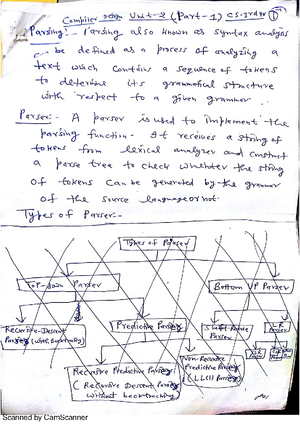 Compiler design Unit-2 (Part-1) CS-3rdyr ①
Parsing:- Parsing also known as syntax analysis
be defined as a process of analyzing a
text which contains a sequence of tokens
to determine its grammatical structure
with respect to a given grammar.
Parser:- A parser is used to implement the
parsing function. It receives a string of
tokens from lexical analyzer and construct
a parse tree to check whether the string
of tokens can be generated by the grammar
of the source language or not.
Types of Parser:-
Types of Parser
Top-down Parser
Bottom up Parser
Recursive-Descent
Parsing (with Backtracking)
Predictive Parsing
Shift-Reduce
Parser
L-R
Parser
Recursive Predictive Parsing
(Recursive Descent Parsing
without backtracking)
Non-Recursive
Predictive Parsing
(LL(1) Parsing)
Scanned by CamScanner